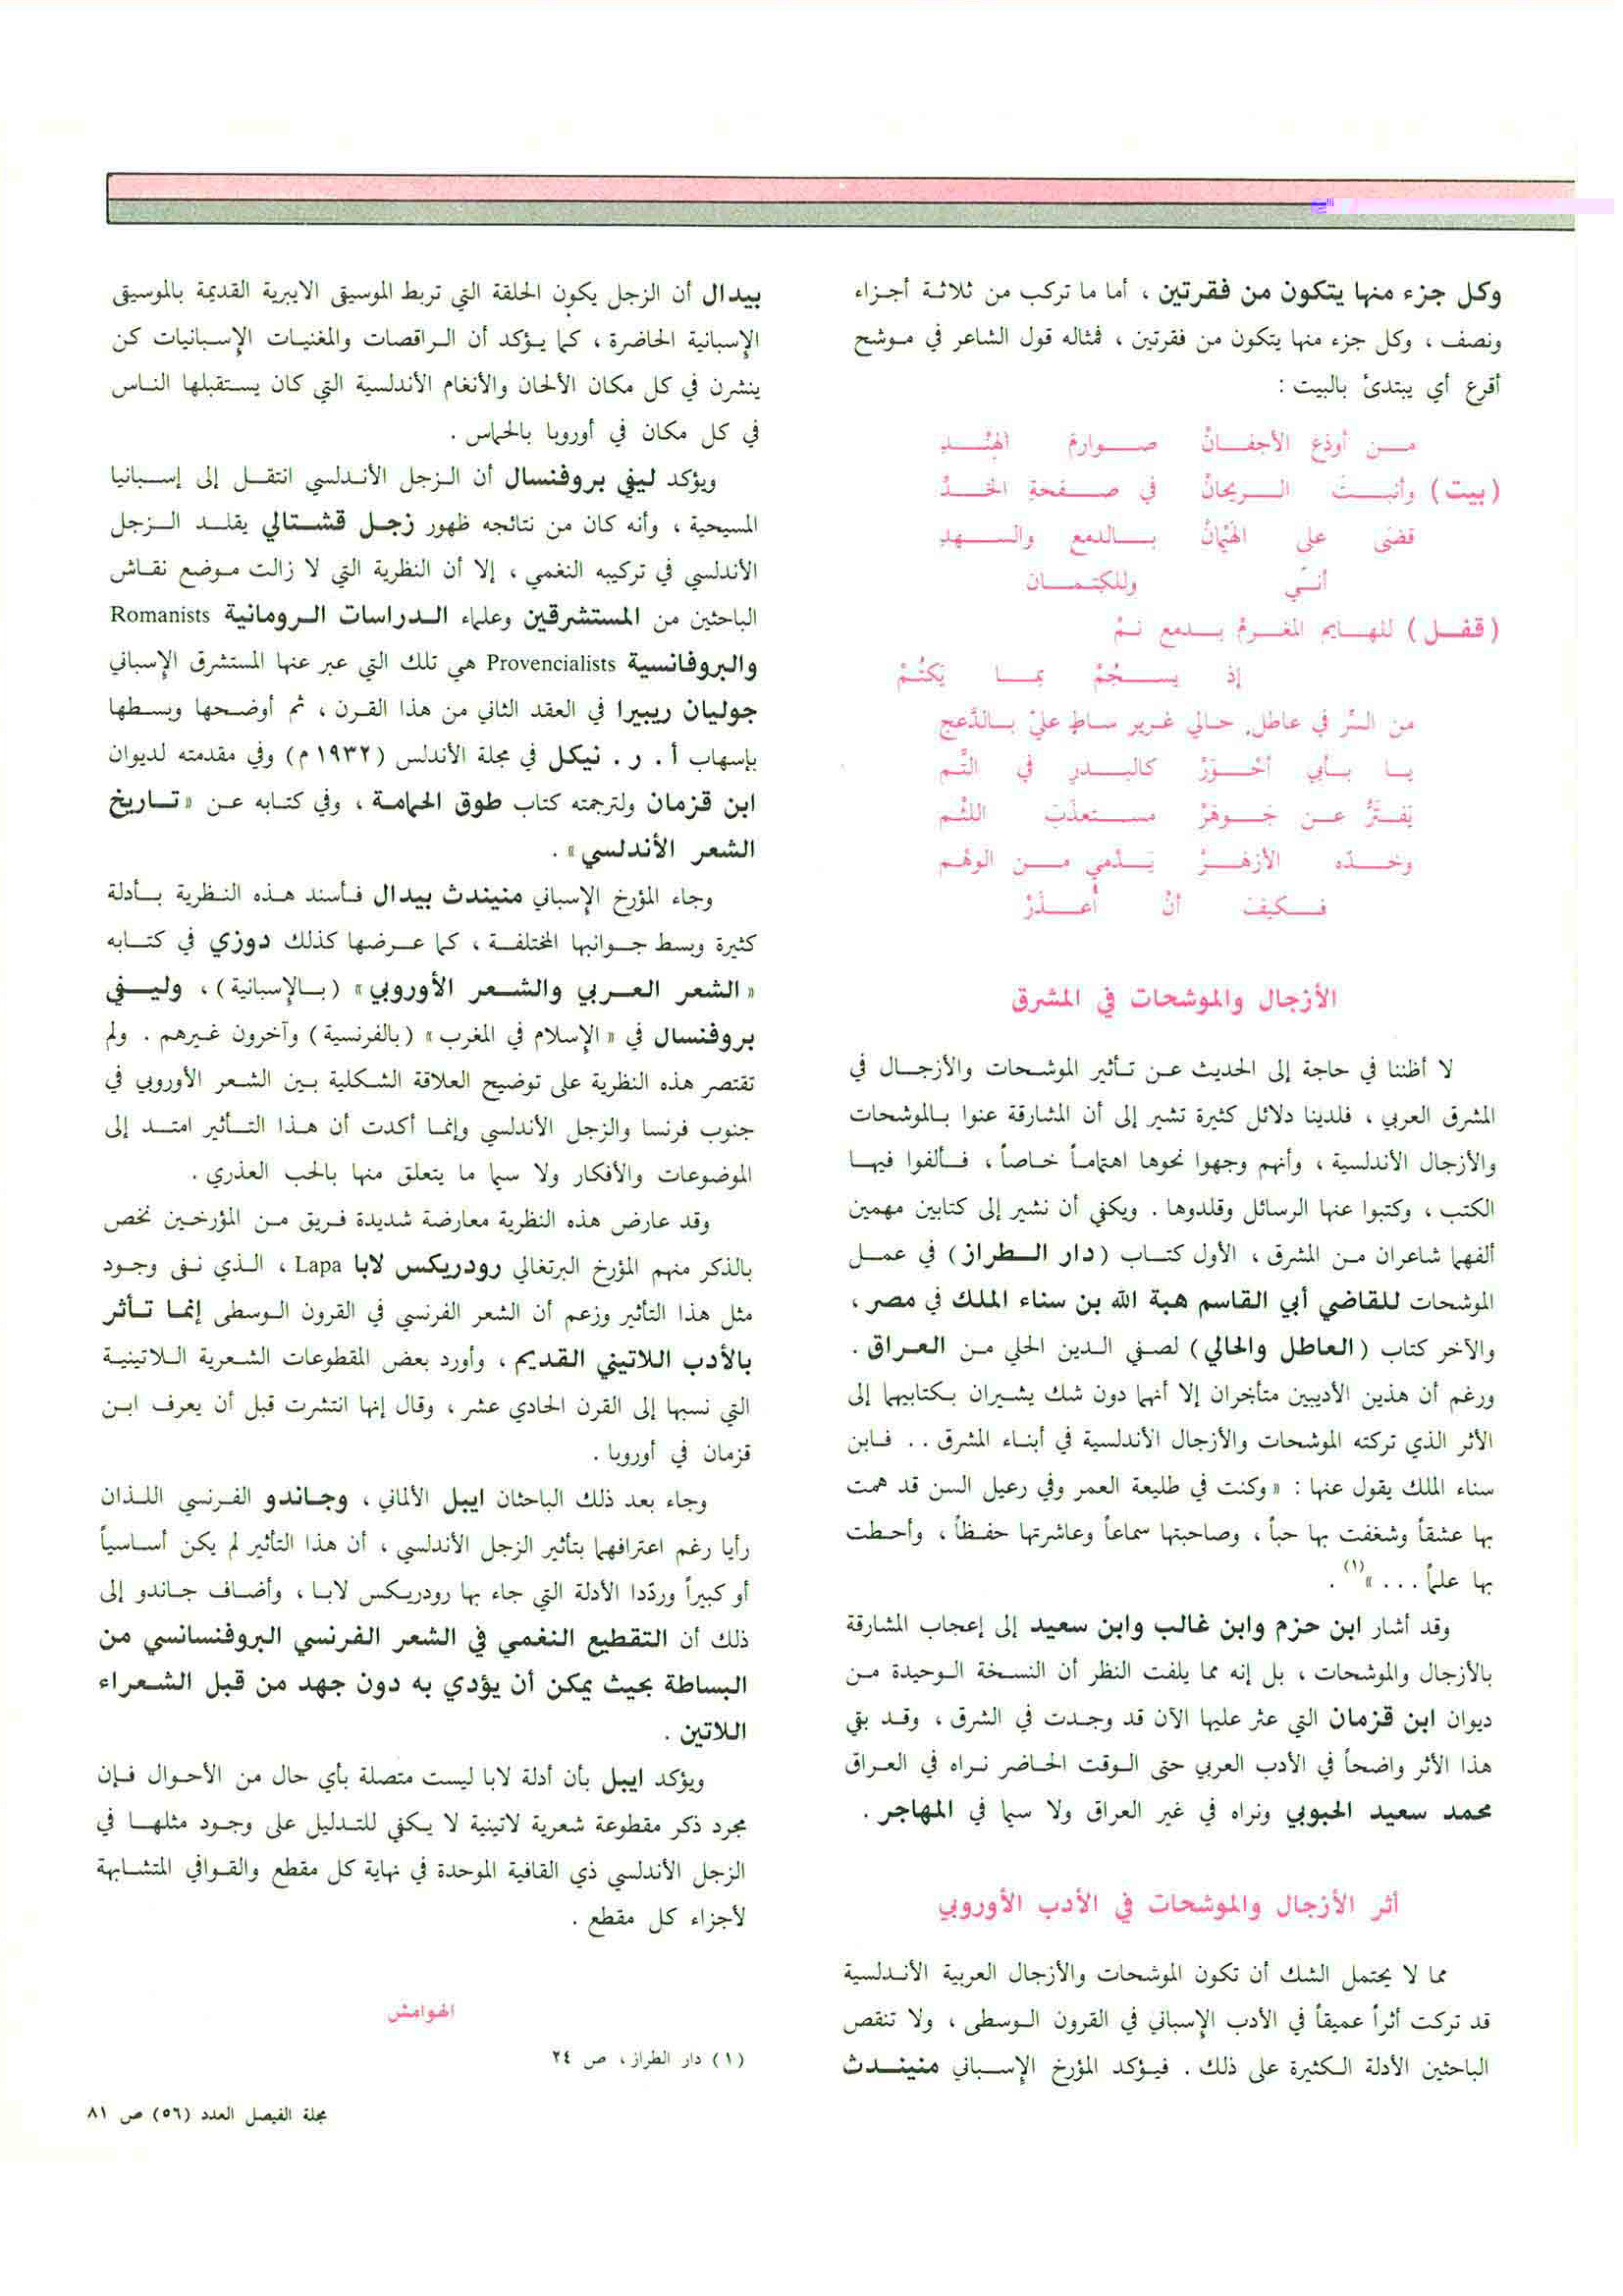 وكل جزء منها يتكون من فقرتين ، أما ما تركب من ثلاثة أجزاء
ونصف ، وكل جزء منها يتكون من فقرتين ، فمثاله قول الشاعر في موشح
أقرع أي يبتدئ بالبيت :
من أودَع الأجفانْ صوارمَ الهِنْدِ
(بيت) وأنبتَ الريحانْ في صفحةِ الخدِّ
قضَى على الهَيْمانْ بالدمع والسهدِ
أنّي وللكِتمان
(قفل) للهايم المغرمْ بدمع نمْ
إذ يسجُمْ بما يَكتُمْ
من السِّر في عاطل. حالي غرير ساطٍ عليَّ بالدَّعج
يا بأبي أحْوَرْ كالبدرِ في التَّم
يَفترُّ عن جَوهَرْ مستعذَبِ اللثْم
وخدّه الأزهَرْ يَدْمي من الوهْم
فكيفَ أنْ أُعذَرْ
الأزجال والموشحات في المشرق
لا أظننا في حاجة إلى الحديث عن تأثير الموشحات والأزجال في
المشرق العربي ، فلدينا دلائل كثيرة تشير إلى أن المشارقة عنوا بالموشحات
والأزجال الأندلسية ، وأنهم وجهوا نحوها اهتماماً خاصاً ، فألفوا فيها
الكتب ، وكتبوا عنها الرسائل وقلدوها . ويكفي أن نشير إلى كتابين مهمين
ألفهما شاعران من المشرق ، الأول كتاب (دار الطراز) في عمل
الموشحات للقاضي أبي القاسم هبة الله بن سناء الملك في مصر ،
والآخر كتاب (العاطل والحالي) لصفي الدين الحلي من العراق .
ورغم أن هذين الأديبين متأخران إلا أنهما دون شك يشيران بكتابيهما إلى
الأثر الذي تركته الموشحات والأزجال الأندلسية في أبناء المشرق .. فابن
سناء الملك يقول عنها : « وكنت في طليعة العمر وفي رعيل السن قد همت
بها عشقاً وشغفت بها حباً ، وصاحبتها سماعاً وعاشرتها حفظاً ، وأحطت
بها علماً ... »(١) .
وقد أشار ابن حزم وابن غالب وابن سعيد إلى إعجاب المشارقة
بالأزجال والموشحات ، بل إنه مما يلفت النظر أن النسخة الوحيدة من
ديوان ابن قزمان التي عثر عليها الآن قد وجدت في الشرق ، وقد بقي
هذا الأثر واضحاً في الأدب العربي حتى الوقت الحاضر نراه في العراق
محمد سعيد الحبوبي ونراه في غير العراق ولا سيما في المهاجر .
أثر الأزجال والموشحات في الأدب الأوروبي
مما لا يحتمل الشك أن تكون الموشحات والأزجال العربية الأندلسية
قد تركت أثراً عميقاً في الأدب الإسباني في القرون الوسطى ، ولا تنقص
الباحثين الأدلة الكثيرة على ذلك . فيؤكد المؤرخ الإسباني منيندث
بيدال أن الزجل يكون الحلقة التي تربط الموسيقى الايبرية القديمة بالموسيقى
الإسبانية الحاضرة ، كما يؤكد أن الراقصات والمغنيات الإسبانيات كن
ينشرن في كل مكان الألحان والأنغام الأندلسية التي كان يستقبلها الناس
في كل مكان في أوروبا بالحماس .
ويؤكد ليفي بروفنسال أن الزجل الأندلسي انتقل إلى إسبانيا
المسيحية ، وأنه كان من نتائجه ظهور زجل قشتالي يقلد الزجل
الأندلسي في تركيبه النغمي ، إلا أن النظرية التي لا زالت موضع نقاش
الباحثين من المستشرقين وعلماء الدراسات الرومانية Romanists
والبروفانسية Provencialists هي تلك التي عبر عنها المستشرق الإسباني
جوليان ريبيرا في العقد الثاني من هذا القرن ، ثم أوضحها وبسطها
بإسهاب أ . ر . نيكل في مجلة الأندلس (١٩٣٢ م) وفي مقدمته لديوان
ابن قزمان ولترجمته كتاب طوق الحمامة ، وفي كتابه عن « تاريخ
الشعر الأندلسي » .
وجاء المؤرخ الإسباني منيندث بيدال فأسند هذه النظرية بأدلة
كثيرة وبسط جوانبها المختلفة ، كما عرضها كذلك دوزي في كتابه
« الشعر العربي والشعر الأوروبي » (بالإسبانية) ، وليفي
بروفنسال في « الإسلام في المغرب » (بالفرنسية) وآخرون غيرهم . ولم
تقتصر هذه النظرية على توضيح العلاقة الشكلية بين الشعر الأوروبي في
جنوب فرنسا والزجل الأندلسي وإنما أكدت أن هذا التأثير امتد إلى
الموضوعات والأفكار ولا سيما ما يتعلق منها بالحب العذري .
وقد عارض هذه النظرية معارضة شديدة فريق من المؤرخين نخص
بالذكر منهم المؤرخ البرتغالي رودريكس لابا Lapa ، الذي نفى وجود
مثل هذا التأثير وزعم أن الشعر الفرنسي في القرون الوسطى إنما تأثر
بالأدب اللاتيني القديم ، وأورد بعض المقطوعات الشعرية اللاتينية
التي نسبها إلى القرن الحادي عشر ، وقال إنها انتشرت قبل أن يعرف ابن
قزمان في أوروبا .
وجاء بعد ذلك الباحثان ايبل الألماني ، وجاندو الفرنسي اللذان
رأيا رغم اعترافهما بتأثير الزجل الأندلسي ، أن هذا التأثير لم يكن أساسياً
أو كبيراً وردّدا الأدلة التي جاء بها رودريكس لابا ، وأضاف جاندو إلى
ذلك أن التقطيع النغمي في الشعر الفرنسي البروفنسانسي من
البساطة بحيث يمكن أن يؤدي به دون جهد من قبل الشعراء
اللاتين .
ويؤكد ايبل بأن أدلة لابا ليست متصلة بأي حال من الأحوال فإن
مجرد ذكر مقطوعة شعرية لاتينية لا يكفي للتدليل على وجود مثلها في
الزجل الأندلسي ذي القافية الموحدة في نهاية كل مقطع والقوافي المتشابهة
لأجزاء كل مقطع .
الهوامش
(١) دار الطراز، ص ٢٤
مجلة الفيصل العدد (٥٦) ص ٨١